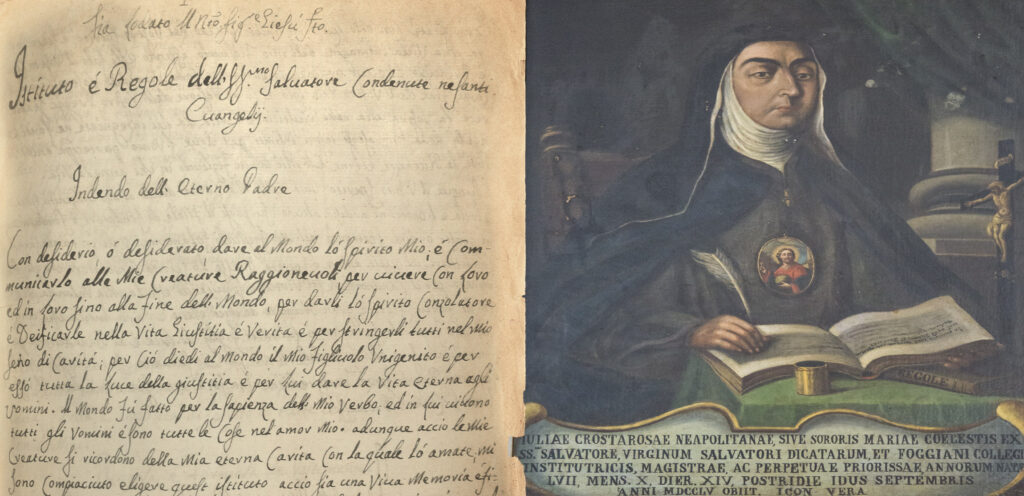 Sia lodato Il Nro Sig.e Giesù Xto.
Istituto é Regole dell SS.mo Salvatore Condenute ne santi
Evangelij.
Indendo dell eterno Padre
Con desiderio ó desiderato dare al Mondo lo Spirito Mio, é Com-
municarlo alle Mie Creature Raggionevoli per vivere con loro
ed in loro sino alla fine dell Mondo, per darli lo Spirito Conzolatore
é Deificarle nella Vita Giustitia é Verita é per stringerli tutti nel mio
seno di Carita; per Ciò diedi al Mondo il Mio Figliuolo Unigenito é per
esso tutta la luce della giustitia é per lui dare la Vita eterna agli
Vomini. Il Mondo fu fatto per la sapienza dell Mio Verbo, ed in lui vivono
tutti gli Vomini é sono tutte le Cose nel amor Mio. adunque accio le Mie
Creature si ricordono della Mia eterna Carita con la quale lo amate, mi
sono Compiaciuto eligere quest istituto accio sia una Viva Memoria
REGOLE
IULIAE CROSTAROSAE NEAPOLITANAE, SIVE SORORIS MARIAE COELESTIS EX
SS. SALVATORE, VIRGINUM SALVATORI DICATARUM, ET FOGGIANI COLLEGI
INSTITUTRICIS, MAGISTRAE, AC PERPETUAE PRIORISSAE, ANNORUM NATA
LVII, MENS. X, DIER. XIV, POSTRIDIE IDUS SEPTEMBRIS
ANNI MDCCLV OBIIT. ICON VERA